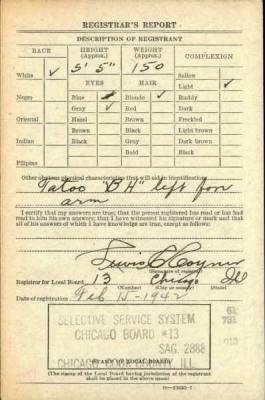 REGISTRAR'S REPORT
DESCRIPTION OF REGISTRANT
RACE HEIGHT (Approx.) WEIGHT (Approx.) COMPLEXION
5' 5" 150
White ✓ EYES HAIR Sallow
Light ✓
Negro Blue Blonde ✓ Ruddy
Gray ✓ Red Dark
Oriental Hazel Brown Freckled
Brown Black Light brown
Indian Black Gray Dark brown
Bald Black
Filipino
Other obvious physical characteristics that will aid in identification
Tatoo "BH" left for
arm
I certify that my answers are true; that the person registered has read or has had
read to him his own answers; that I have witnessed his signature or mark and that
all of his answers of which I have knowledge are true, except as follows:
Lewis C
(Signature of registrar)
Registrar for Local Board 13 Chicago Ill
(Number) (City or county) (State)
Date of registration Feb 15-1942
SELECTIVE SERVICE SYSTEM
CHICAGO BOARD #13
SAG. 2888
CHICAGO, COOK COUNTY, ILL.
61
731
013
(STAMP OF LOCAL BOARD)
(The stamp of the Local Board having jurisdiction of the registrant
shall be placed in the above space.)